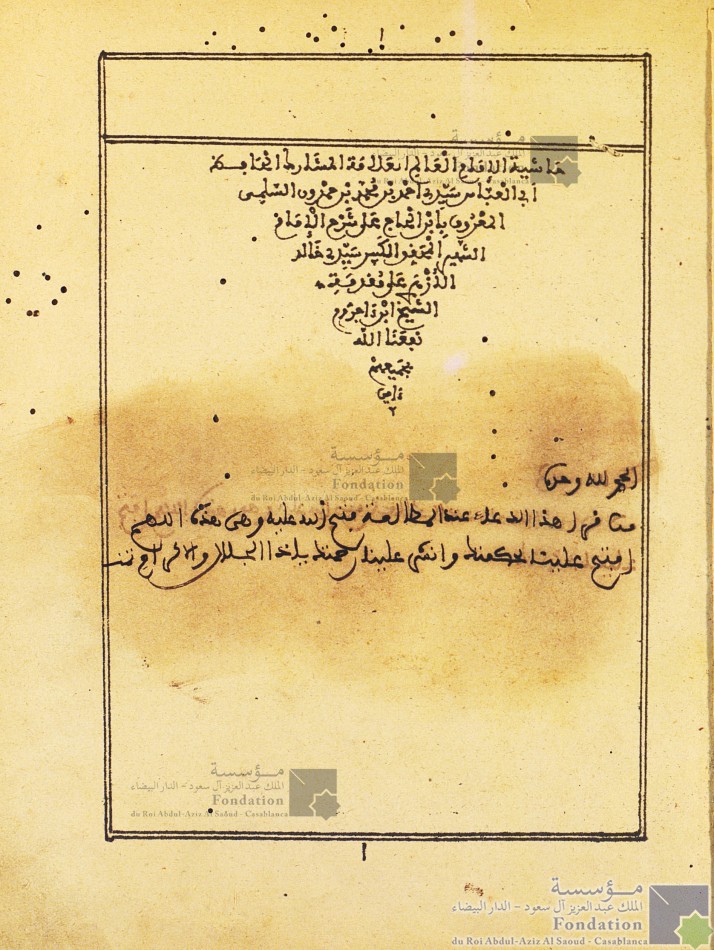 حاشية الإمام العالم العلامة المشارك الحافظ
أبي العباس سيدي أحمد بن محمد بن حمدون السلمي
المعروف بابن الحاج على شرح الإمام
الشهير الجهبذ الكبير سيدي خالد
الأزهري على مقدمة
الشيخ ابن ءاجروم
نفعنا الله
بجميعهم
ءامين
الحمد لله وحده
من قرأ هذا الدعاء عند المطالعة فتح الله عليه وهي هذه اللهم
افتح علينا بحكمتك وانشر علينا رحمتك ياذا الجلال والاكرام
مؤسسة
الملك عبد العزيز آل سعود - الدار البيضاء
Fondation
du Roi Abdul-Aziz Al Saoud - Casablanca
مؤسسة
الملك عبد العزيز آل سعود - الدار البيضاء
Fondation
du Roi Abdul-Aziz Al Saoud - Casablanca
مؤسسة
الملك عبد العزيز آل سعود - الدار البيضاء
Fondation
du Roi Abdul-Aziz Al Saoud - Casablanca